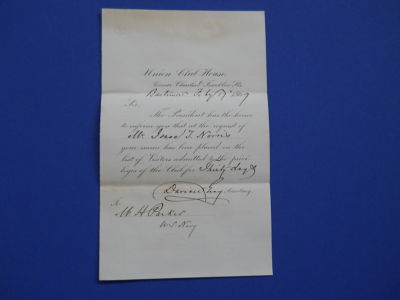 Union Club House,
Corner Charles & Franklin Sts.
Baltimore Feby 1869
Sir,
The President has the honor
to inform you that at the request of
Mr. Isaac T. Norris
your name has been placed on the
list of Visitors admitted to the privi-
leges of the Club for Thirty days
Secretary.
To
M H Parker
U.S. Navy